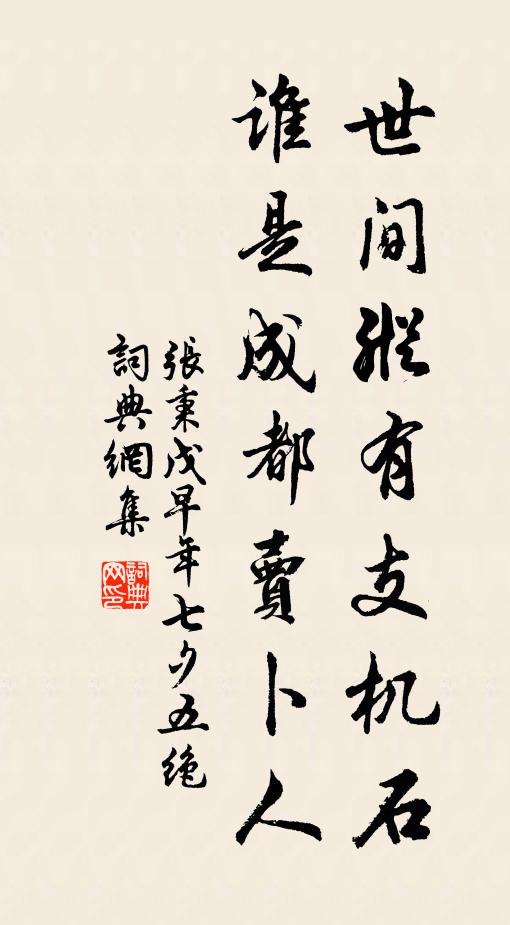 世間縱有支机石
誰是成都賣卜人
張秉戊早年七夕五絕
詞典網集
詞典
网印